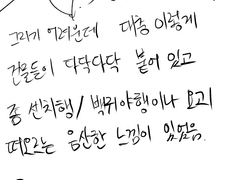 그리기 어려운데 대충 이렇게
건물들이 다닥다닥 붙어 있고
좀 센치행/ 백귀야행이나 요괴
떠오르는 음산한 느낌이 있었음.